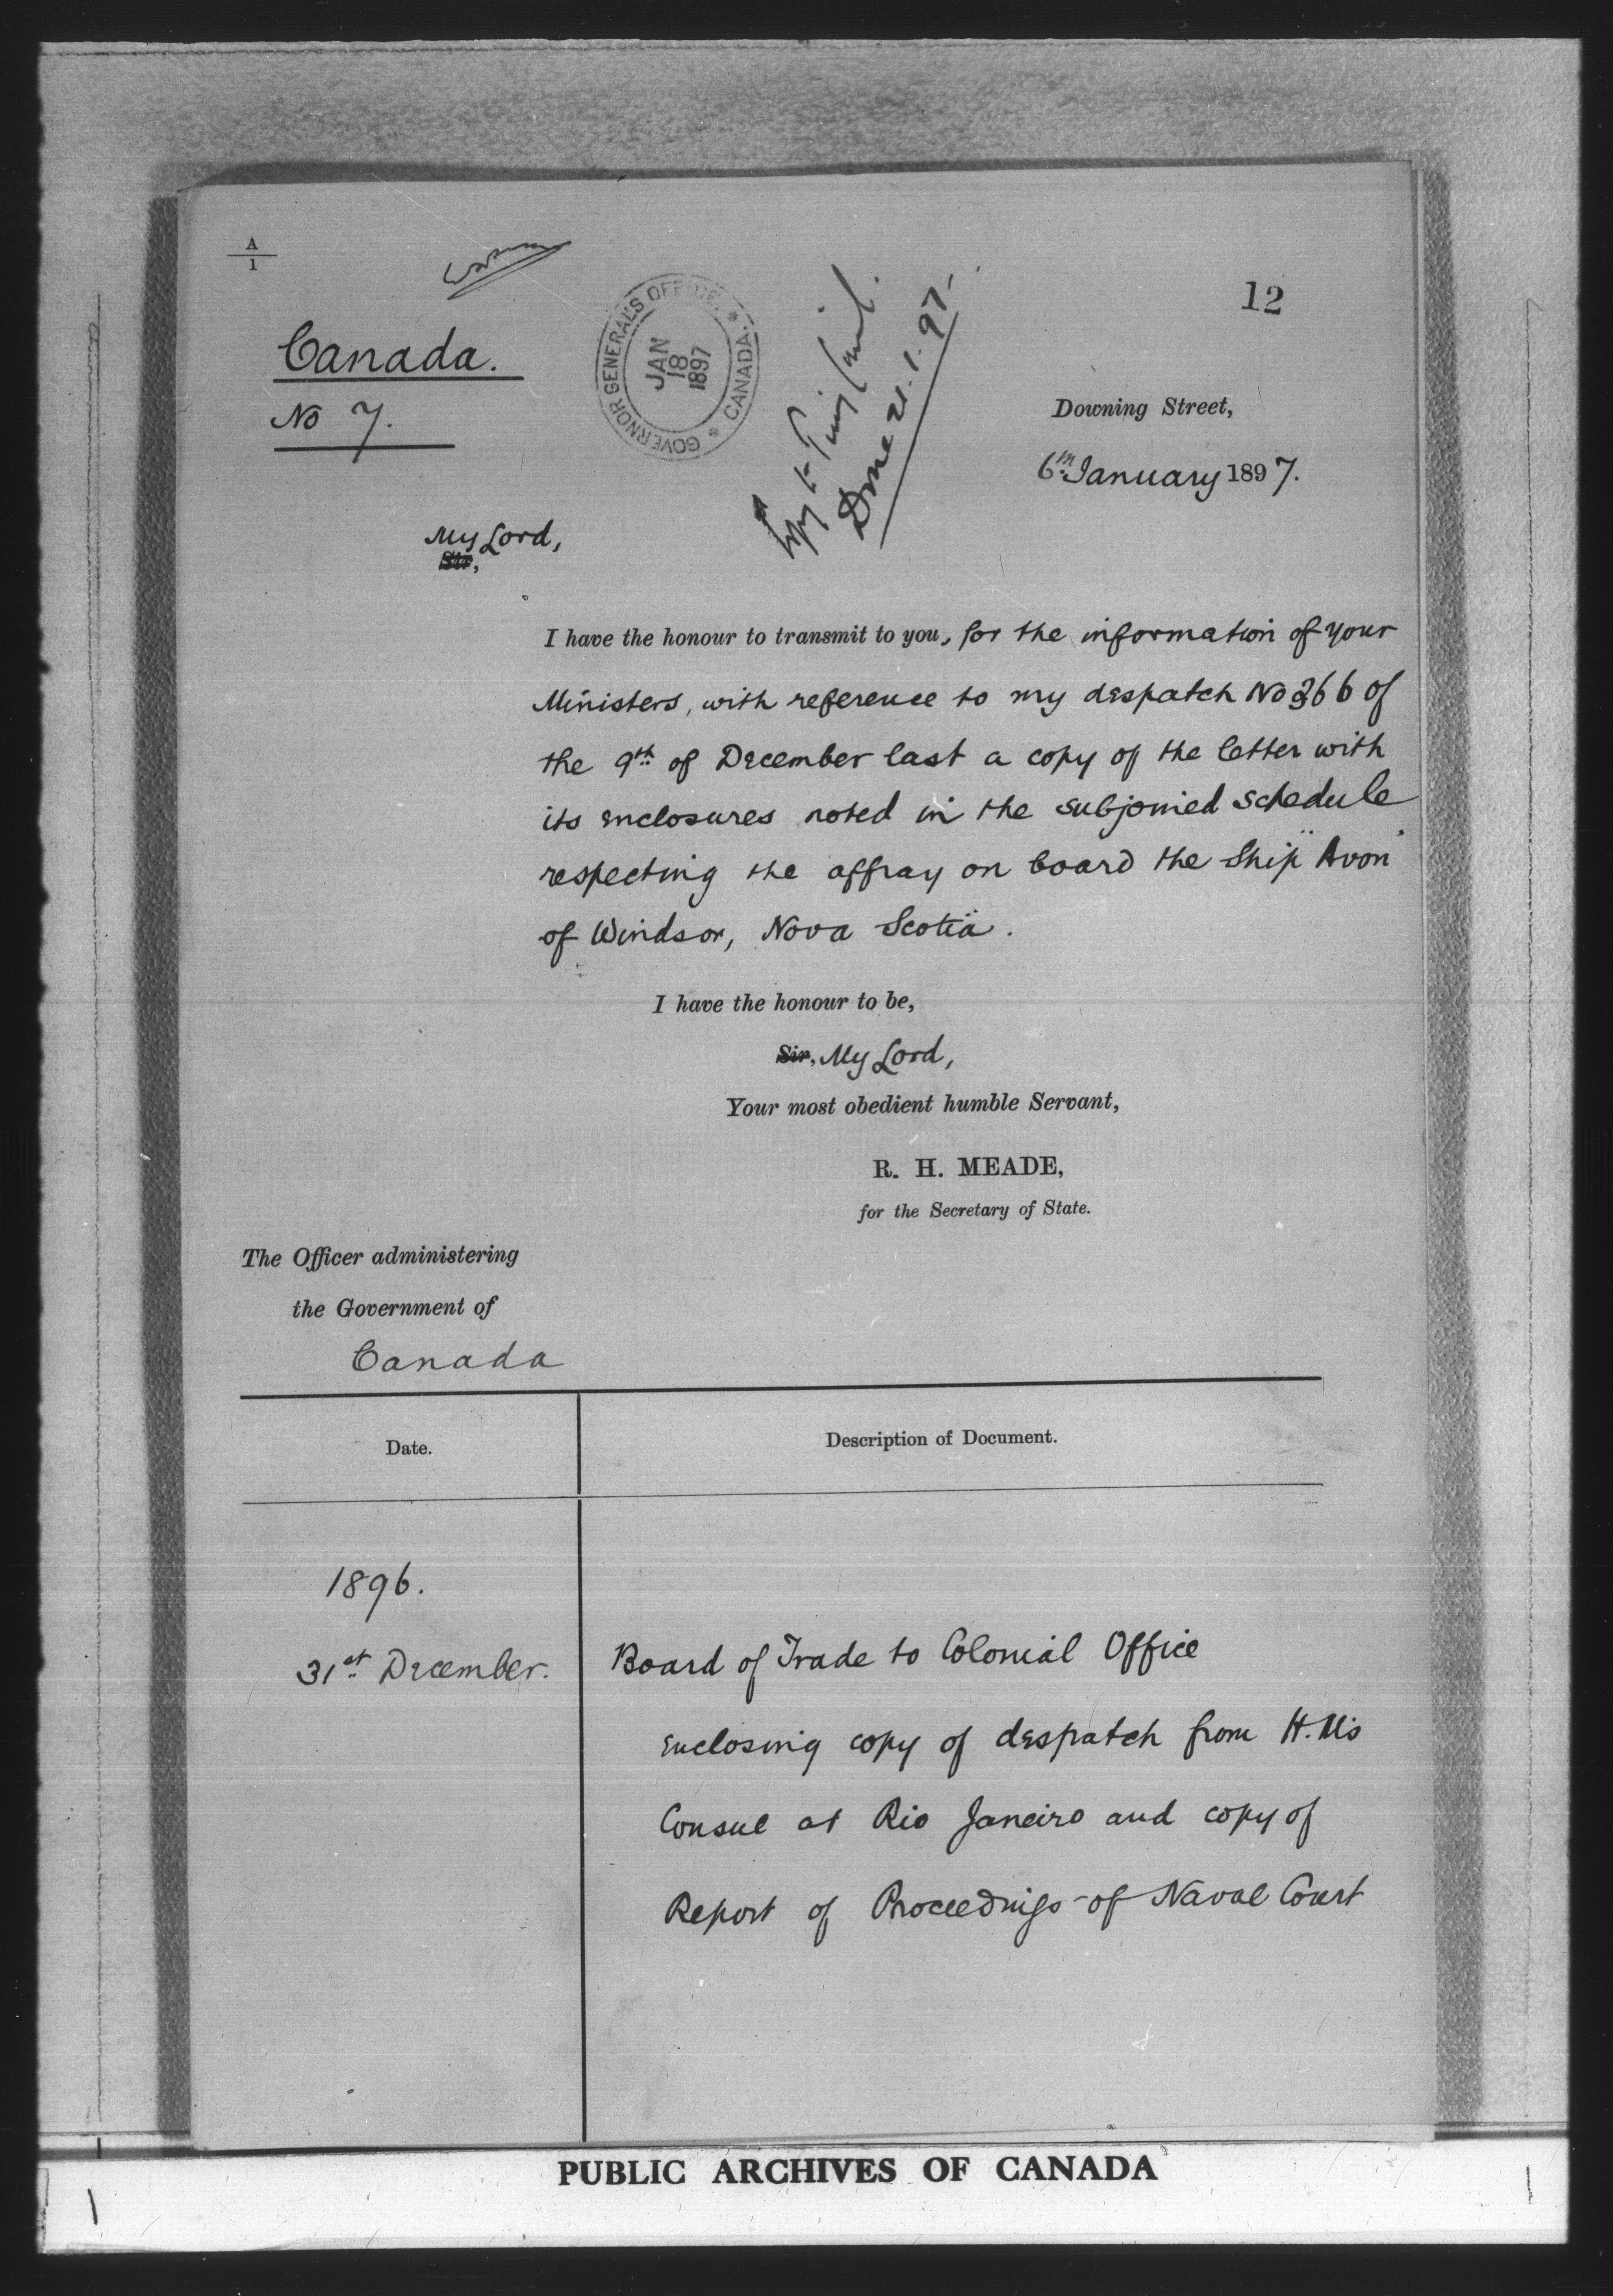 A
1
12
Canada.
No 7.
GOVERNOR GENERAL'S OFFICE * CANADA. *
JAN
18
1897
Copy to Privy Council.
Done 21.1.97
Downing Street,
6th January 1897.
My Lord,
Sir,
I have the honour to transmit to you, for the information of your
Ministers, with reference to my despatch No 366 of
the 9th of December last a copy of the letter with
its enclosures noted in the subjoined schedule
respecting the affray on board the Ship "Avon"
of Windsor, Nova Scotia.
I have the honour to be,
Sir, My Lord,
Your most obedient humble Servant,
R. H. MEADE,
for the Secretary of State.
The Officer administering
the Government of
Canada
Date.
Description of Document.
1896.
31st December.
Board of Trade to Colonial Office
enclosing copy of despatch from H.M's
Consul at Rio Janeiro and copy of
Report of Proceedings of Naval Court
PUBLIC ARCHIVES OF CANADA